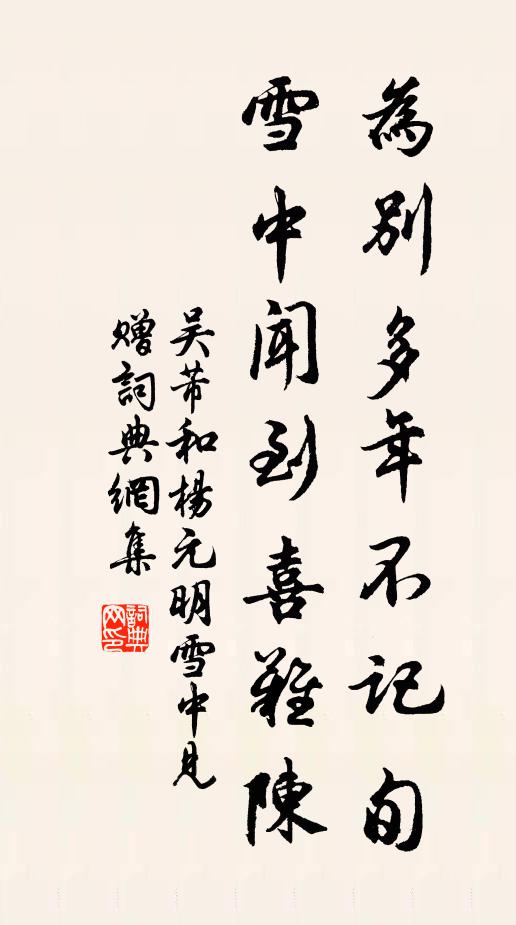 為別多年不記旬
雪中聞到喜難陳
吳芾和楊元明雪中見
贈詞典網集
詞典
網印